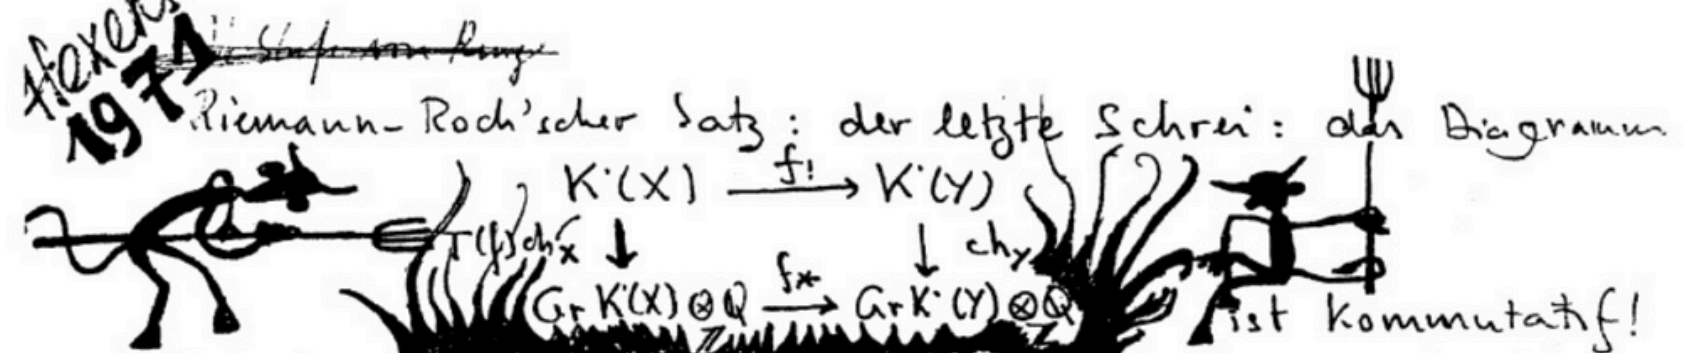 Hexen
1971
Riemann-Roch'scher Satz: der letzte Schrei: das Diagramm
K·(X) f! K·(Y)
T(f)chx chy
f*
Gr K·(X)⊗Q → Gr K·(Y)⊗Q
ist kommutatif!